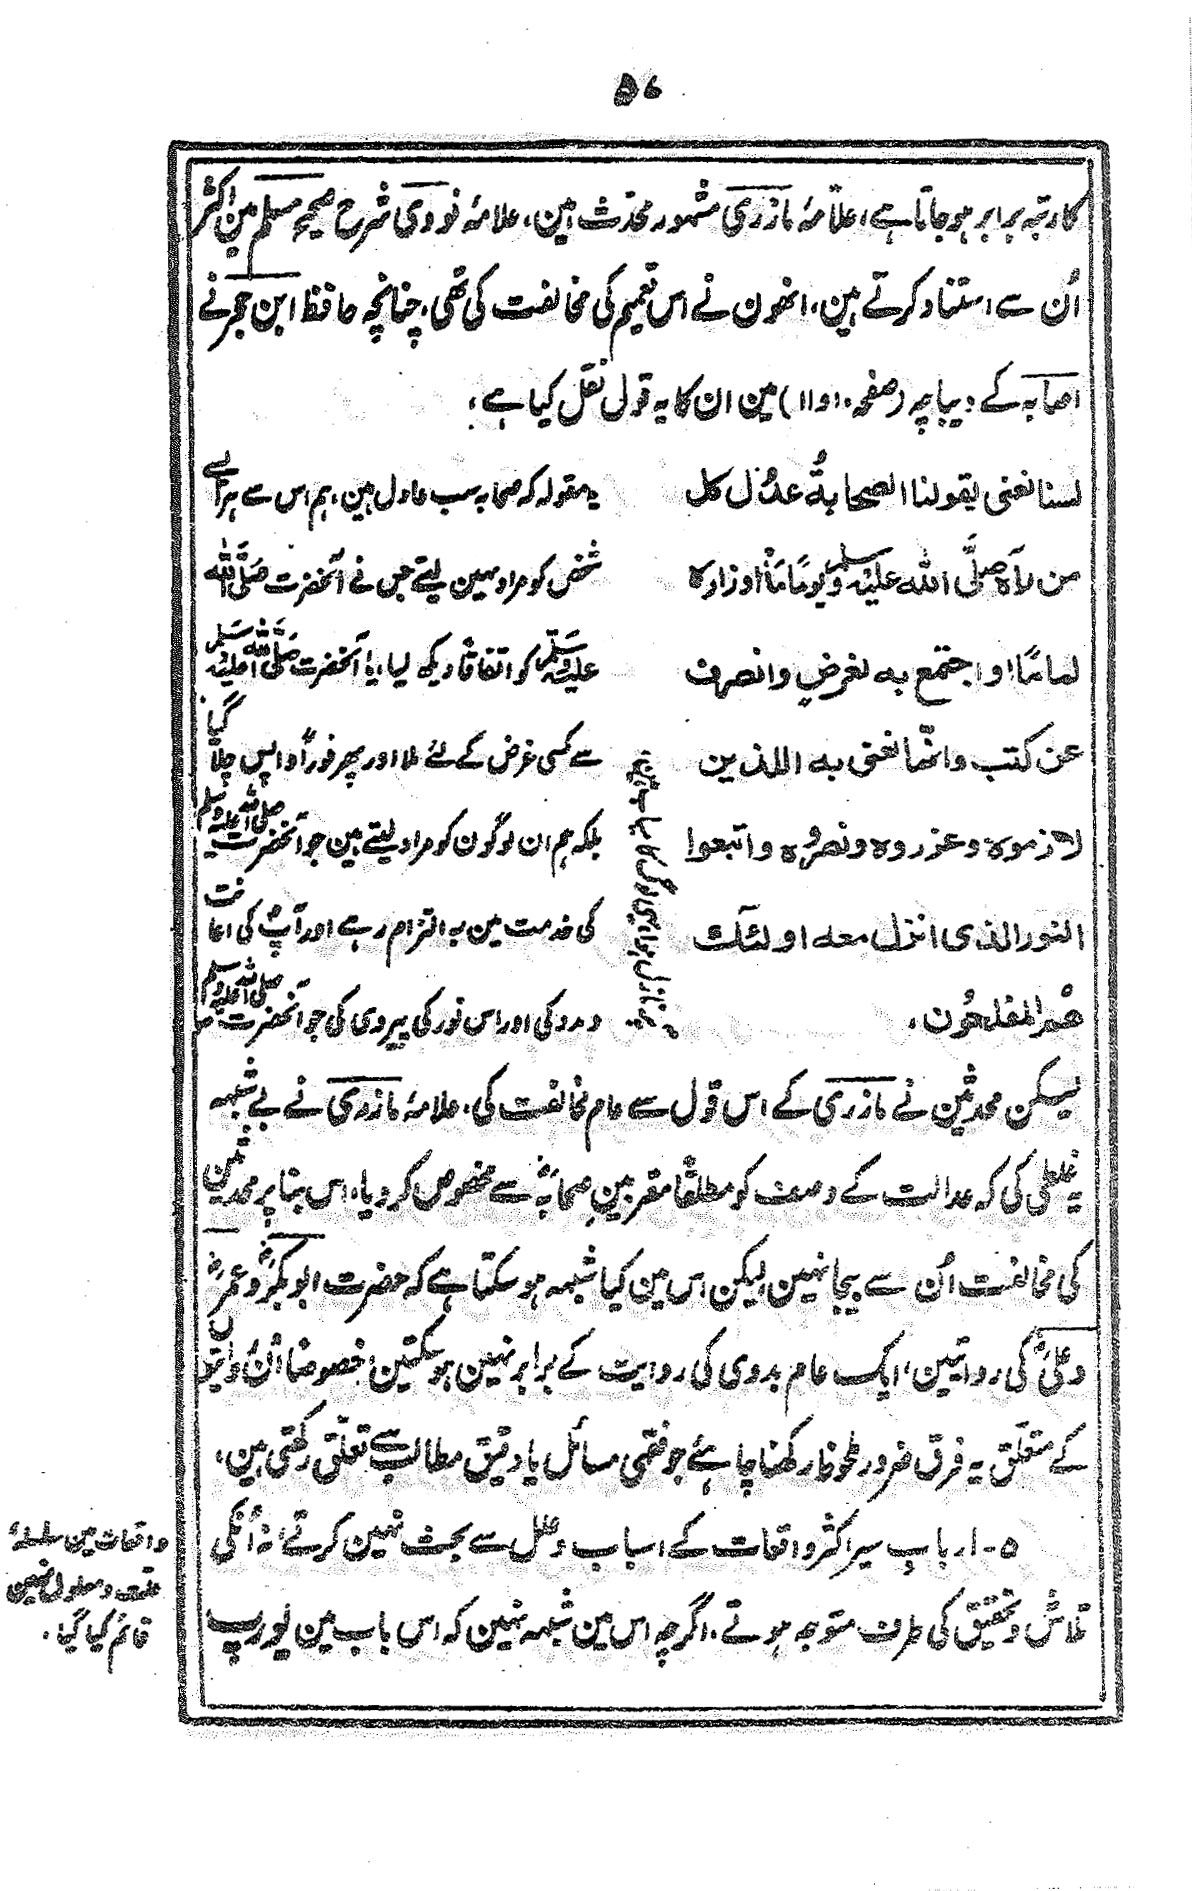 ۵۷
کا رتبہ برابر ہو جاتا ہے، علامۂ مازری مشہور محدث ہین، علامۂ نووی شرح صحیح مسلم مین اکثر
اُن سے استناد کرتے ہین، انھون نے اس تعمیم کی مخالفت کی تھی، چنانچہ حافظ ابن حجر نے
اصابہ کے دیباچہ (صفحہ ۱۰ و ۱۱) مین ان کا یہ قول نقل کیا ہے،
لسنا نعنی بقولنا الصحابةُ عدُول کل
من راٰہ صلَّی اللہ علیْہ وسلم یومًا مَّا او زارہ
لمامًا او اجتمع بہ لغرضٍ وانصرف
عن کتب وانّما نعنی بہ الذین
لازموہ وعزروہ ونصرُوہ واتبعوا
النور الذی انزل معہ اولئٓک
ھُم المفلحُون،
یہ مقولہ کہ صحابہ سب عادل ہین، ہم اس سے ہر ایسے
شخص کو مراد نہین لیتے جس نے آنحضرت صَلَّی اللہ
علیہ وسلّم کو اتفاقاً دیکھ لیا، یا آنحضرت صَلَّی اللہ علیہ وسلم
سے کسی غرض کے لئے ملا اور پھر فوراً واپس چلا گیا
بلکہ ہم ان لوگون کو مراد لیتے ہین جو آنحضرت صلی اللہ علیہ وسلم
کی خدمت مین بہ التزام رہے اور آپؐ کی اعانت
و مدد کی اور اس نور کی پیروی کی جو آنحضرت صلی اللہ علیہ وسلم
پر نازل ہوا، یہی لوگ کامیاب ہین،
لیکن محدثین نے مازری کے اس قول سے عام مخالفت کی، علامۂ مازری نے بے شبہہ
یہ غلطی کی کہ عدالت کے وصف کو مطلقاً مقربینِ صحابہؓ سے مخصوص کر دیا، اس بنا پر محدثین
کی مخالفت اُن سے بیجا نہین لیکن اس مین کیا شبہہ ہو سکتا ہے کہ حضرت ابو بکرؓ و عمرؓ
و علیؓ کی روایتین، ایک عام بدوی کی روایت کے برابر نہین ہو سکتین، خصوصًا اُن روایتون
کے متعلق یہ فرق ضرور ملحوظ رکھنا چاہئے جو فقہی مسائل یا دقیق مطالب سے تعلّق رکھتی ہین،
۵- ارباب سیر اکثر واقعات کے اسباب و علل سے بحث نہین کرتے، نہ اُنکی
تلاش و تحقیق کی طرف متوجہ ہوتے، اگرچہ اس مین شبہہ نہین کہ اس باب مین یورپ
واقعات مین سلسلۂ
علت و معلول نہین
قائم کیا گیا.